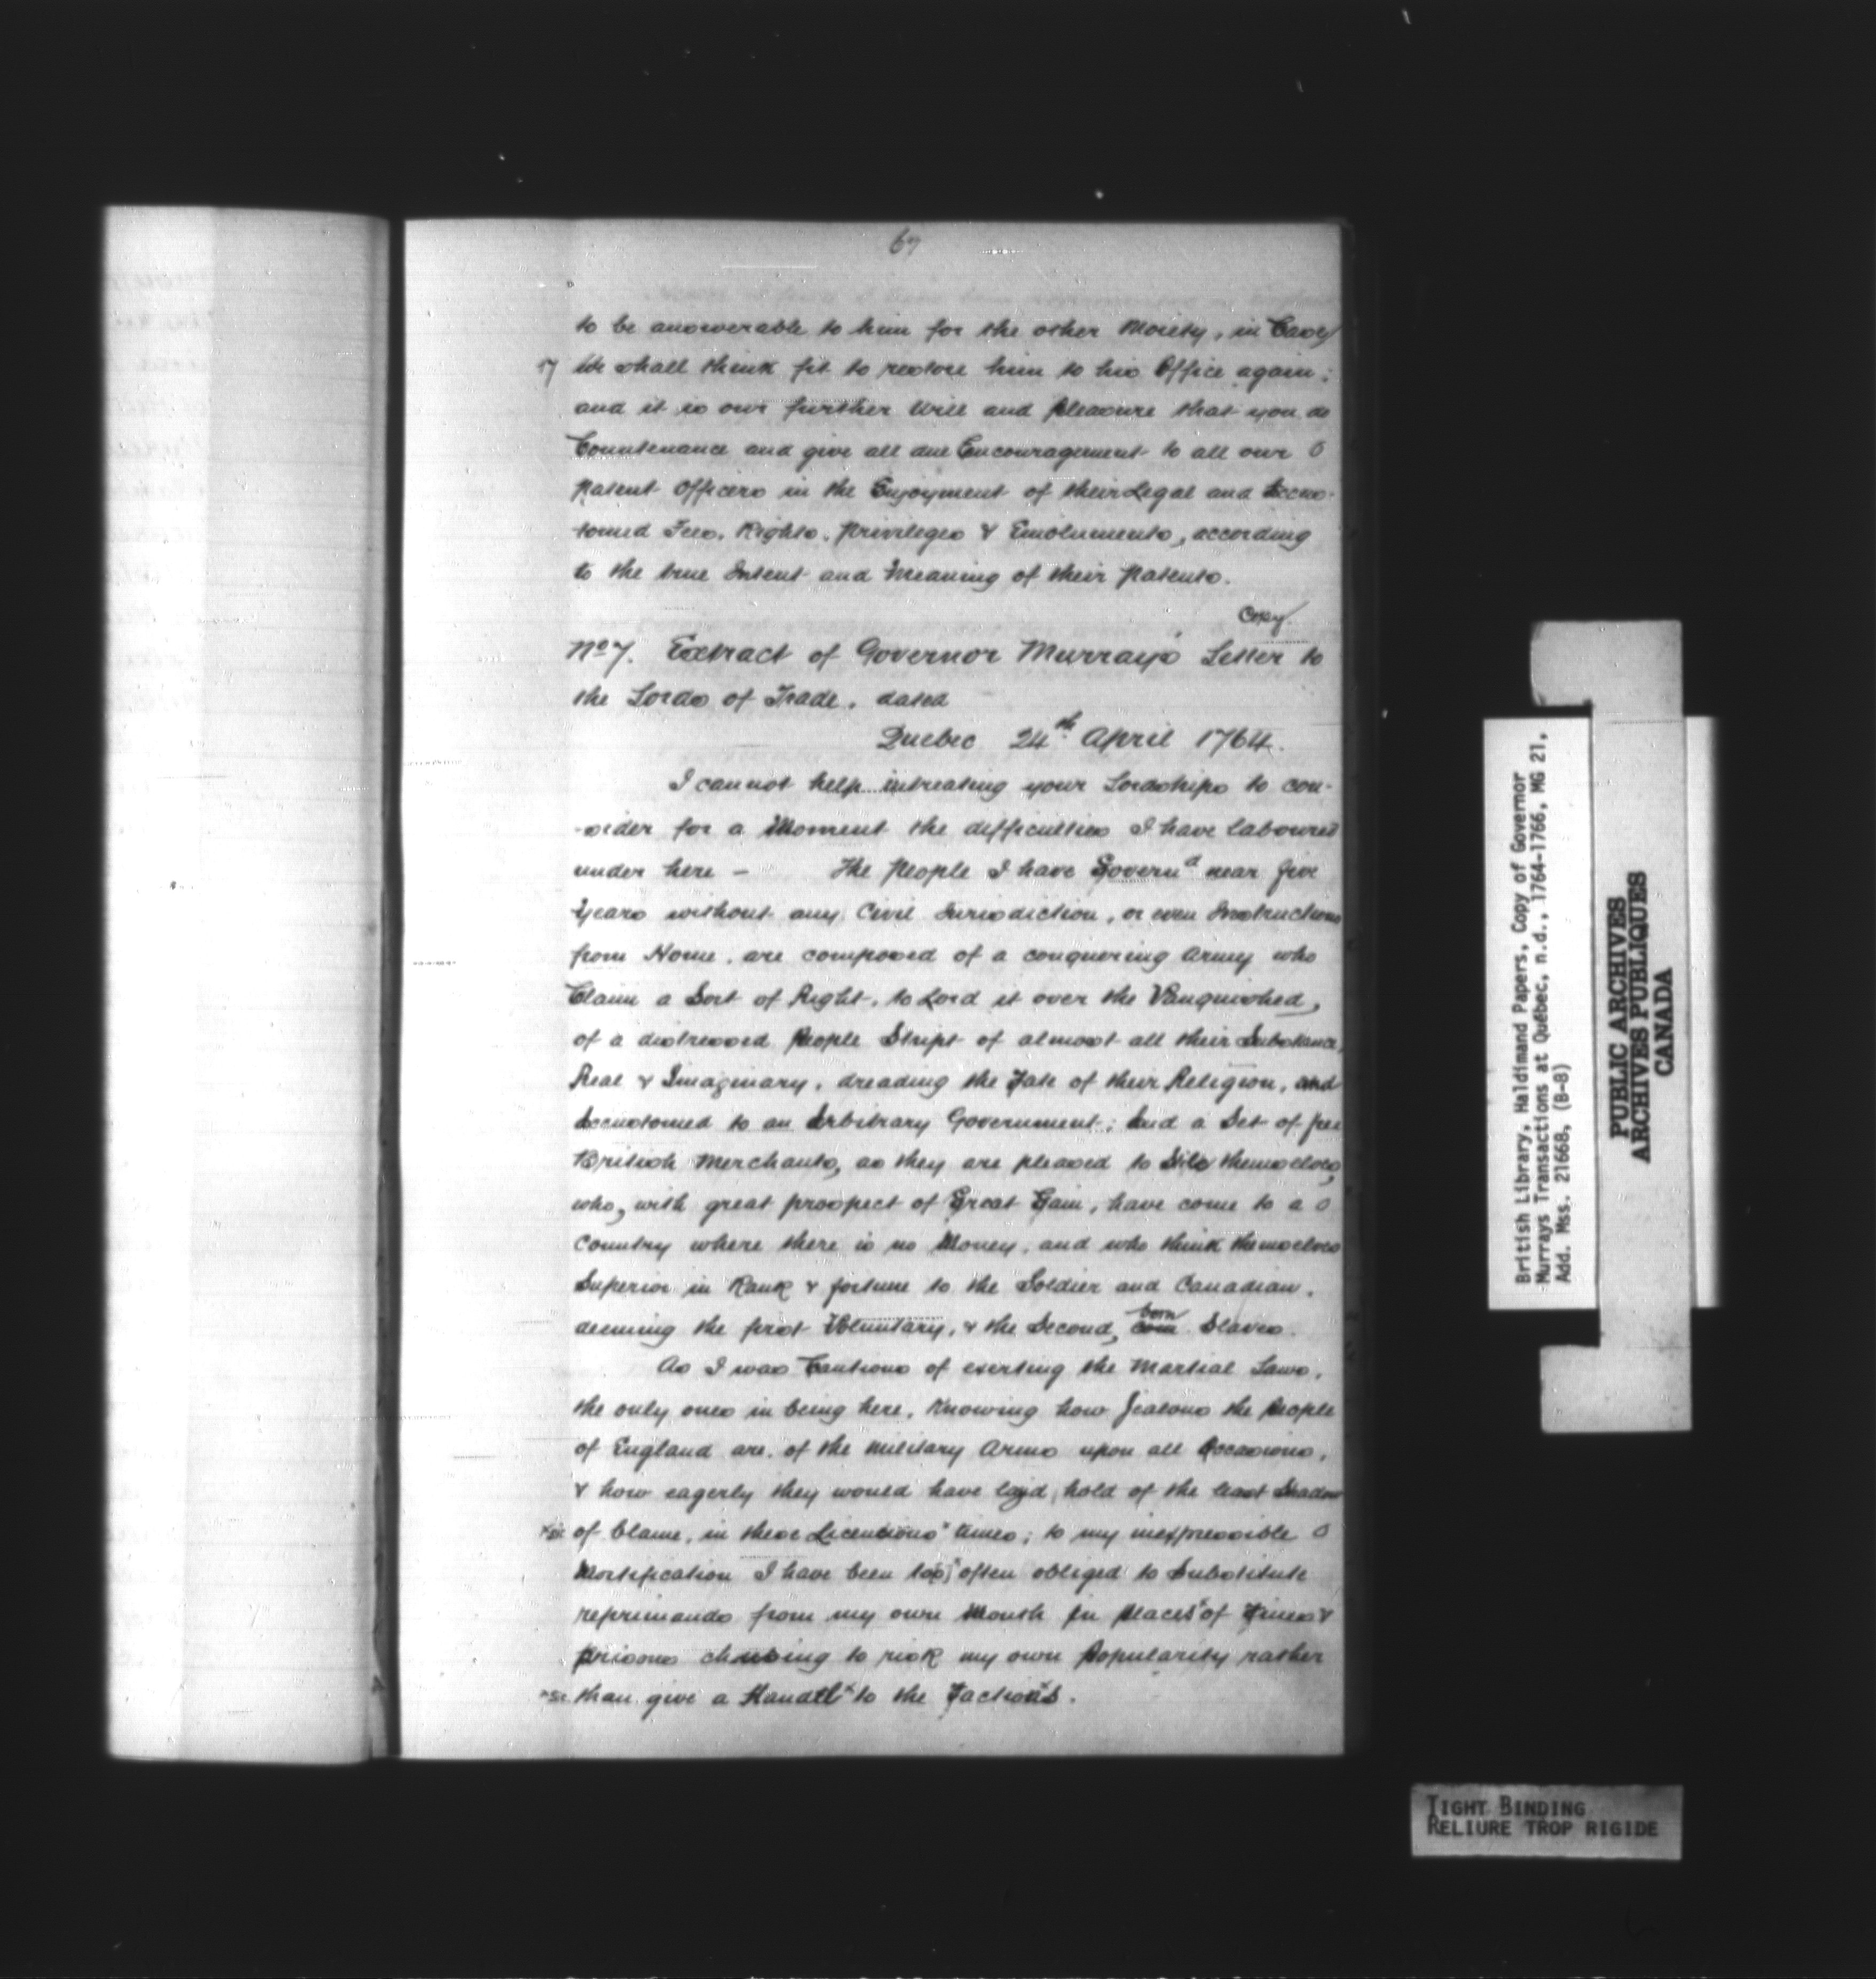 67
to be answerable to him for the other Moiety, in Case
17 We shall think fit to restore him to his Office again;
and it is our further Will and Pleasure that you do
Countenance and give all due Encouragement to all our
Patent Officers in the Enjoyment of their Legal and Accus-
tomed Fees, Rights, Privileges & Emoluments, according
to the true Intent and Meaning of their Patents.
Copy
No 7. Extract of Governor Murray's Letter to
the Lords of Trade, dated
Quebec 24th April 1764.
I cannot help intreating your Lordships to con-
-sider for a Moment the difficulties I have laboured
under here — The People I have Govern'd near five
Years without any Civil Jurisdiction, or even Instructions
from Home, are composed of a conquering Army who
Claim a Sort of Right, to Lord it over the Vanquished,
of a distressed People Stript of almost all their Substance,
Real & Imaginary, dreading the Fate of their Religion, and
Accustomed to an Arbitrary Government; And a Set of free
British Merchants, as they are pleased to Stile themselves,
who, with great prospect of Great Gain, have come to a
Country where there is no Money, and who think themselves
Superior in Rank & fortune to the Soldier and Canadian,
deeming the first Voluntary, & the Second, born Slaves.
As I was Cautious of exerting the Martial Laws,
the only ones in being here, Knowing how Jealous the People
of England are, of the Military Arms upon all Occasions,
& how eagerly they would have layd hold of the least Shadow
x sic of blame, in these Licentious x times; to my inexpressible
Mortification I have been too often obliged to Substitute
reprimands from my own Mouth in places of Fines &
prisons chusing to risk my own Popularity rather
x sic than give a Handll x to the Factions.
British Library, Haldimand Papers, Copy of Governor
Murrays Transactions at Québec, n.d., 1764-1766, MG 21,
Add. Mss. 21668, (B-8)
PUBLIC ARCHIVES
ARCHIVES PUBLIQUES
CANADA
TIGHT BINDING
RELIURE TROP RIGIDE